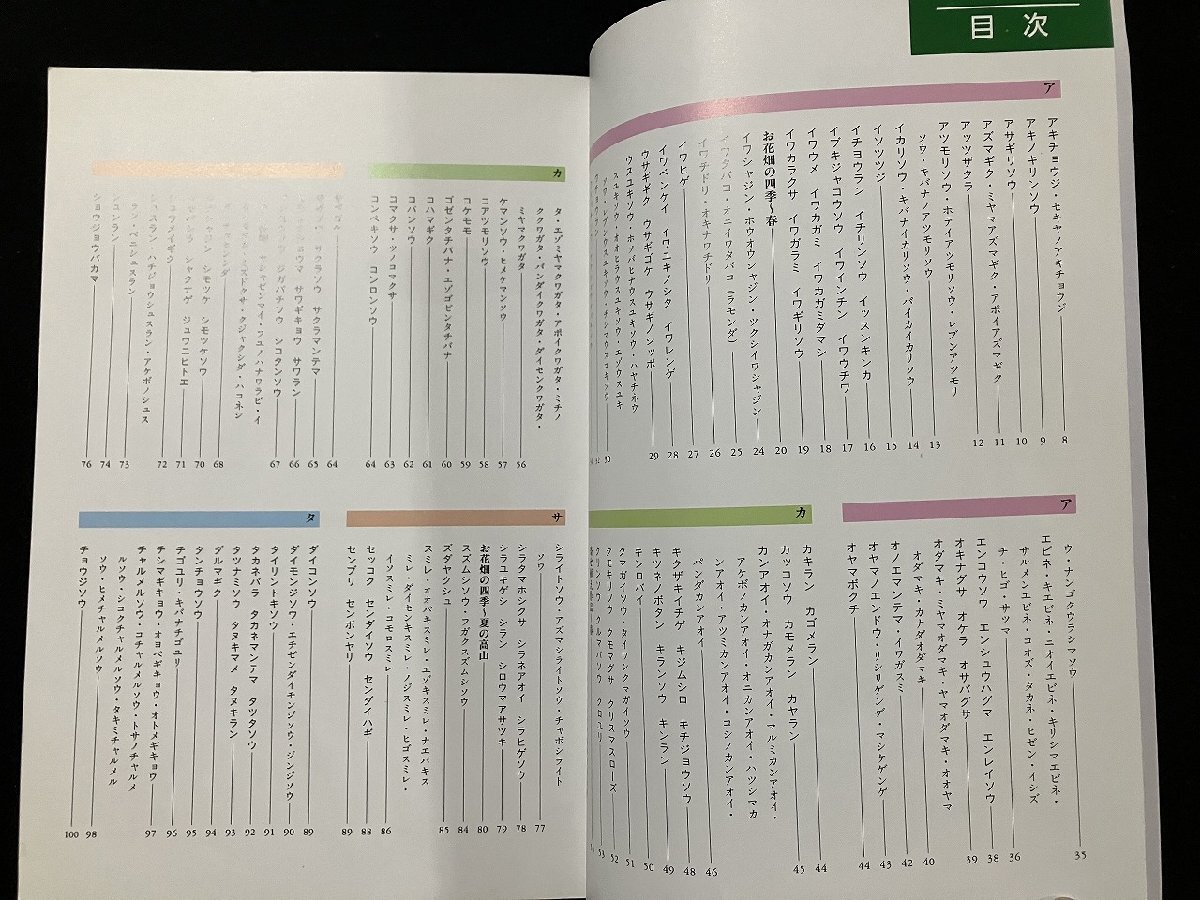 目次
ア
アキチョウジ・セキヤノアキチョウジ 8
アキノキリンソウ 9
アサギリソウ 10
アズマギク・ミヤマアズマギク・アポイアズマギク 11
アッツザクラ 12
アツモリソウ・ホテイアツモリソウ・レブンアツモリ
ソウ・キバナノアツモリソウ 13
イカリソウ・キバナイカリソウ・バイカイカリソウ 14
イソツツジ 15
イチョウラン イチリンソウ イヌノキンカ 16
イブキジャコウソウ イワインチン イワウチワ 17
イワウメ イワカガミ イワカガミダマシ 18
イワカラクサ イワガラミ イワギリソウ 19
お花畑の四季〜春 20
イワシャジン・ホウオウシャジン・ツクシイワシャジン 24
イワタバコ・ケイワタバコ(ラモンダ) 25
イワチドリ・オキナワチドリ 26
イワヒゲ 27
イワベンケイ イワユキノシタ イワレンゲ 28
ウサギギク ウサギゴケ ウサギノシッポ 29
ウスユキソウ・ホソバヒナウスユキソウ・ハヤチネウ
スユキソウ・オオヒラウスユキソウ・エゾウスユキ
ア
ウ・ナンゴクウラシマソウ 35
エビネ・キエビネ・ニオイエビネ・キリシマエビネ・
サルメンエビネ・コオズ・タカネ・ヒゼン・イシズ
チ・ヒゴ・サツマ 36
エンコウソウ エンシュウハグマ エンレイソウ 38
オキナグサ オケラ オサバグサ 39
オダマキ・ミヤマオダマキ・ヤマオダマキ・オオヤマ
オダマキ・カナダオダマキ 40
オノエマンテマ・イワガスミ 42
オヤマノエンドウ・リシリゲンゲ・マシケゲンゲ 43
オヤマボクチ 44
カ
カキラン カゴメラン 44
カッコソウ カモメラン カヤラン 45
カンアオイ・オナガカンアオイ・マルミカンアオイ・
アケボノカンアオイ・オニカンアオイ・ハツシマカ
ンアオイ・アツミカンアオイ・コシノカンアオイ・
パンダカンアオイ 46
キクザキイチゲ キジムシロ キチジョウソウ 48
キツネノボタン キランソウ キンラン 49
キンロバイ 50
クマガイソウ・タイワンクマガイソウ 51
クモキリソウ クモマグサ クリスマスローズ 52
クリンソウ クルマバソウ クロユリ 53
カ
タ・エゾミヤマクワガタ・アポイクワガタ・ミチノ
ククワガタ・バンダイクワガタ・ダイセンクワガタ・
ミヤマクワガタ 56
ケマンソウ・ヒメケマンソウ 57
コアツモリソウ 58
コケモモ 59
ゴゼンタチバナ・エゾゴゼンタチバナ 60
コハマギク 61
コバンソウ 62
コマクサ・ツノコマクサ 63
コンペキソウ コンロンソウ 64
64
サクラソウ サクラマンテマ 65
サワギキョウ サワラン 66
ジガバチソウ シコタンソウ 67
68
シモツケ シモツケソウ 70
シャクナゲ ジュウニヒトエ 71
シュウメイギク 72
シュスラン ハチジョウシュスラン・アケボノシュス
ラン・ベニシュスラン 73
シュンラン 74
ショウジョウバカマ 76
サ
シライトソウ・アズマシライトソウ・チャボシライト
ソウ 77
シラタマホシクサ シラネアオイ シラヒゲソウ 78
シラユキゲシ シラン シロウマアサツキ 79
お花畑の四季〜夏の高山 80
スズムシソウ・フガクスズムシソウ 84
ズダヤクシュ 85
スミレ・アオバスミレ・エゾキスミレ・ナエバキス
ミレ・ダイセンキスミレ・ノジスミレ・ヒゴスミレ・
イソスミレ・コモロスミレ 86
セッコク センダイソウ センダイハギ 88
センブリ センボンヤリ 89
タ
ダイコンソウ 89
ダイモンジソウ・エチゼンダイモンジソウ・ジンジソウ 90
タイリントキソウ 91
タカネバラ タカネマンテマ タツタソウ 92
タツナミソウ タヌキマメ タヌキラン 93
ダルマギク 94
タンチョウソウ 95
チゴユリ・キバナチゴユリ 96
チシマギキョウ・オヨベギキョウ・オトメギキョウ 97
チャルメルソウ・コチャルメルソウ・トサノチャルメ
ルソウ・シコクチャルメルソウ・タキミチャルメル
ソウ・ヒメチャルメルソウ 98
チョウジソウ 100